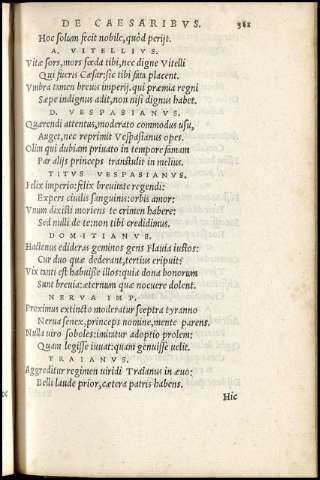 DE CAESARIBVS. 381
Hoc solum fecit nobile, quòd perijt.
A. VITELLIVS.
Vitæ sors, mors fœda tibi, nec digne Vitelli
Qui fueras Cæsar: sic tibi fata placent.
Vmbra tamen breuis imperij. qui præmia regni
Sæpe indignus adit, non nisi dignus habet.
D. VESPASIANVS.
Quærendi attentus, moderato commodus usu,
Auget, nec reprimit Vespasianus opes.
Olim qui dubiam priuato in tempore famam
Par alijs princeps transtulit in melius.
TITVS VESPASIANVS.
Felix imperio: felix breuitate regendi:
Expers ciuilis sanguinis: orbis amor:
Vnum dixisti moriens te crimen habere:
Sed nulli de te: non tibi credidimus.
DOMITIANVS.
Hactenus edideras geminos gens Flauia iustos:
Cur duo quæ dederant, tertius eripuit?
Vix tanti est habuisse illos: quia dona bonorum
Sunt breuia: æternum quæ nocuere dolent.
NERVA IMP.
Proximus extincto moderatur sceptra tyranno
Nerua senex, princeps nomine, mente parens.
Nulla uiro soboles: imitatur adoptio prolem:
Quam legisse iuuat: quam genuisse uelit.
TRAIANVS.
Aggreditur regimen uiridi Traianus in æuo:
Belli laude prior, cætera patris habens.
Hic